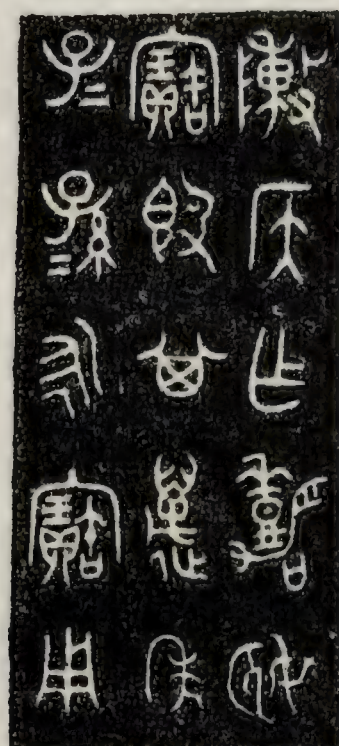 陳侯乍嘉姬
寶𣪘其萬年
子＝孫＝永寶用